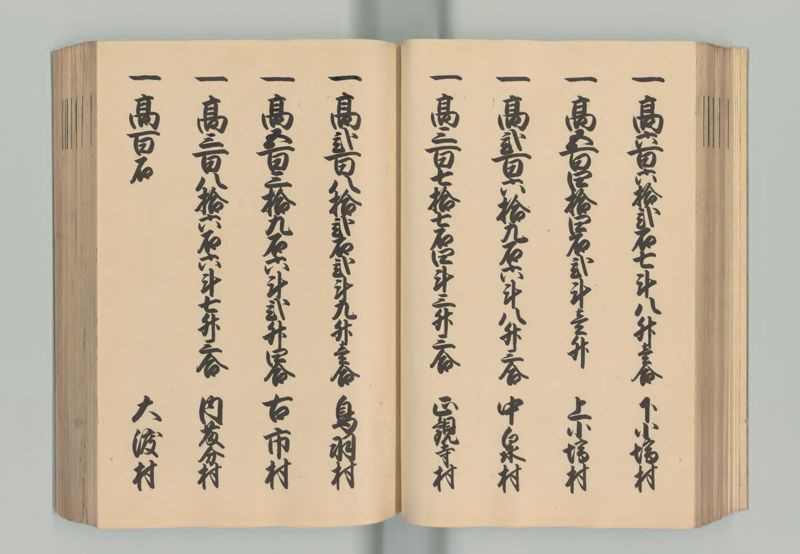 一 高六百六拾弐石七斗八升壱合 下小塙村
一 高五百四拾四石弐斗壱升 上小塙村
一 高弐百六拾九石六斗八升二合 中泉村
一 高三百七拾七石四斗三升二合 正観寺村
一 高弐百八拾弐石弐斗九升壱合 鳥羽村
一 高五百三拾九石六斗弐升四合 古市村
一 高三百八拾六石六斗七升二合 内藤分村
一 高百石 大渡村